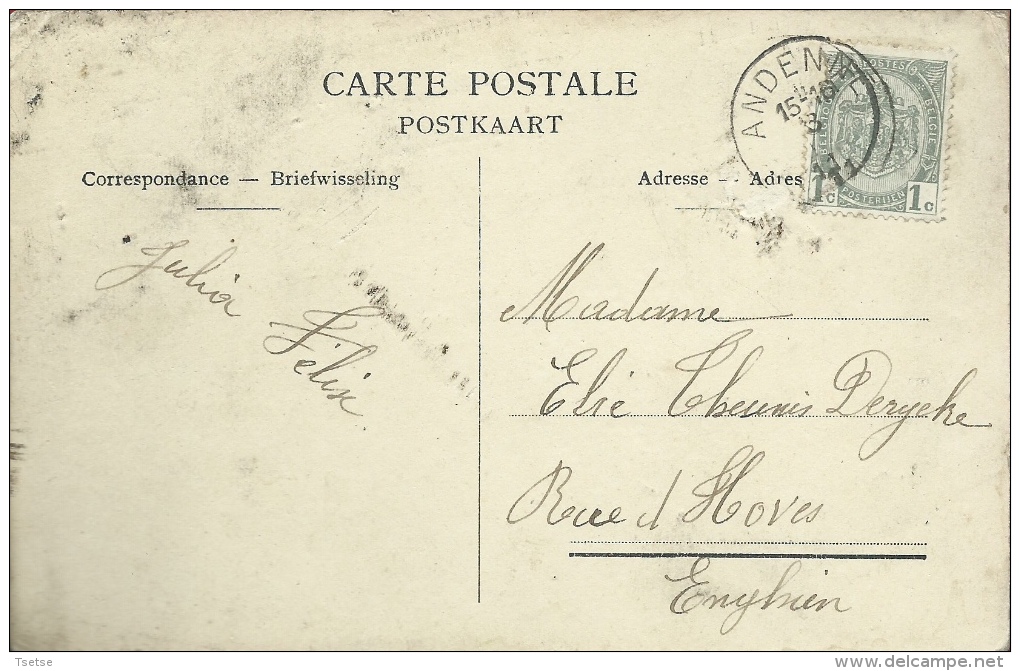 CARTE POSTALE
POSTKAART
Correspondance — Briefwisseling
Adresse — Adres
ANDENNE
15-16
8
11
POSTES
BELGIQUE
BELGIE
POSTERIJEN
1c 1c
Julia
Félix
Madame
Elie Theunis Derycke
Rue d Hoves
Enghien
Tsetse
delcampe.net